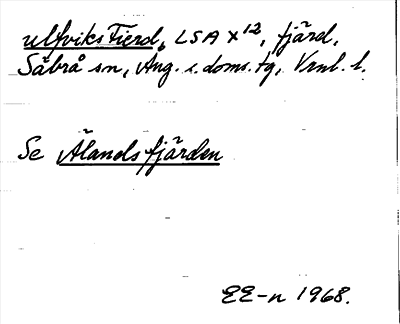 ulfviks Fierd, LSA X¹², fjärd,
Säbrå sn, Ång. s. doms. tg, Vrnl. l.
Se Älandsfjärden
EE-n 1968.